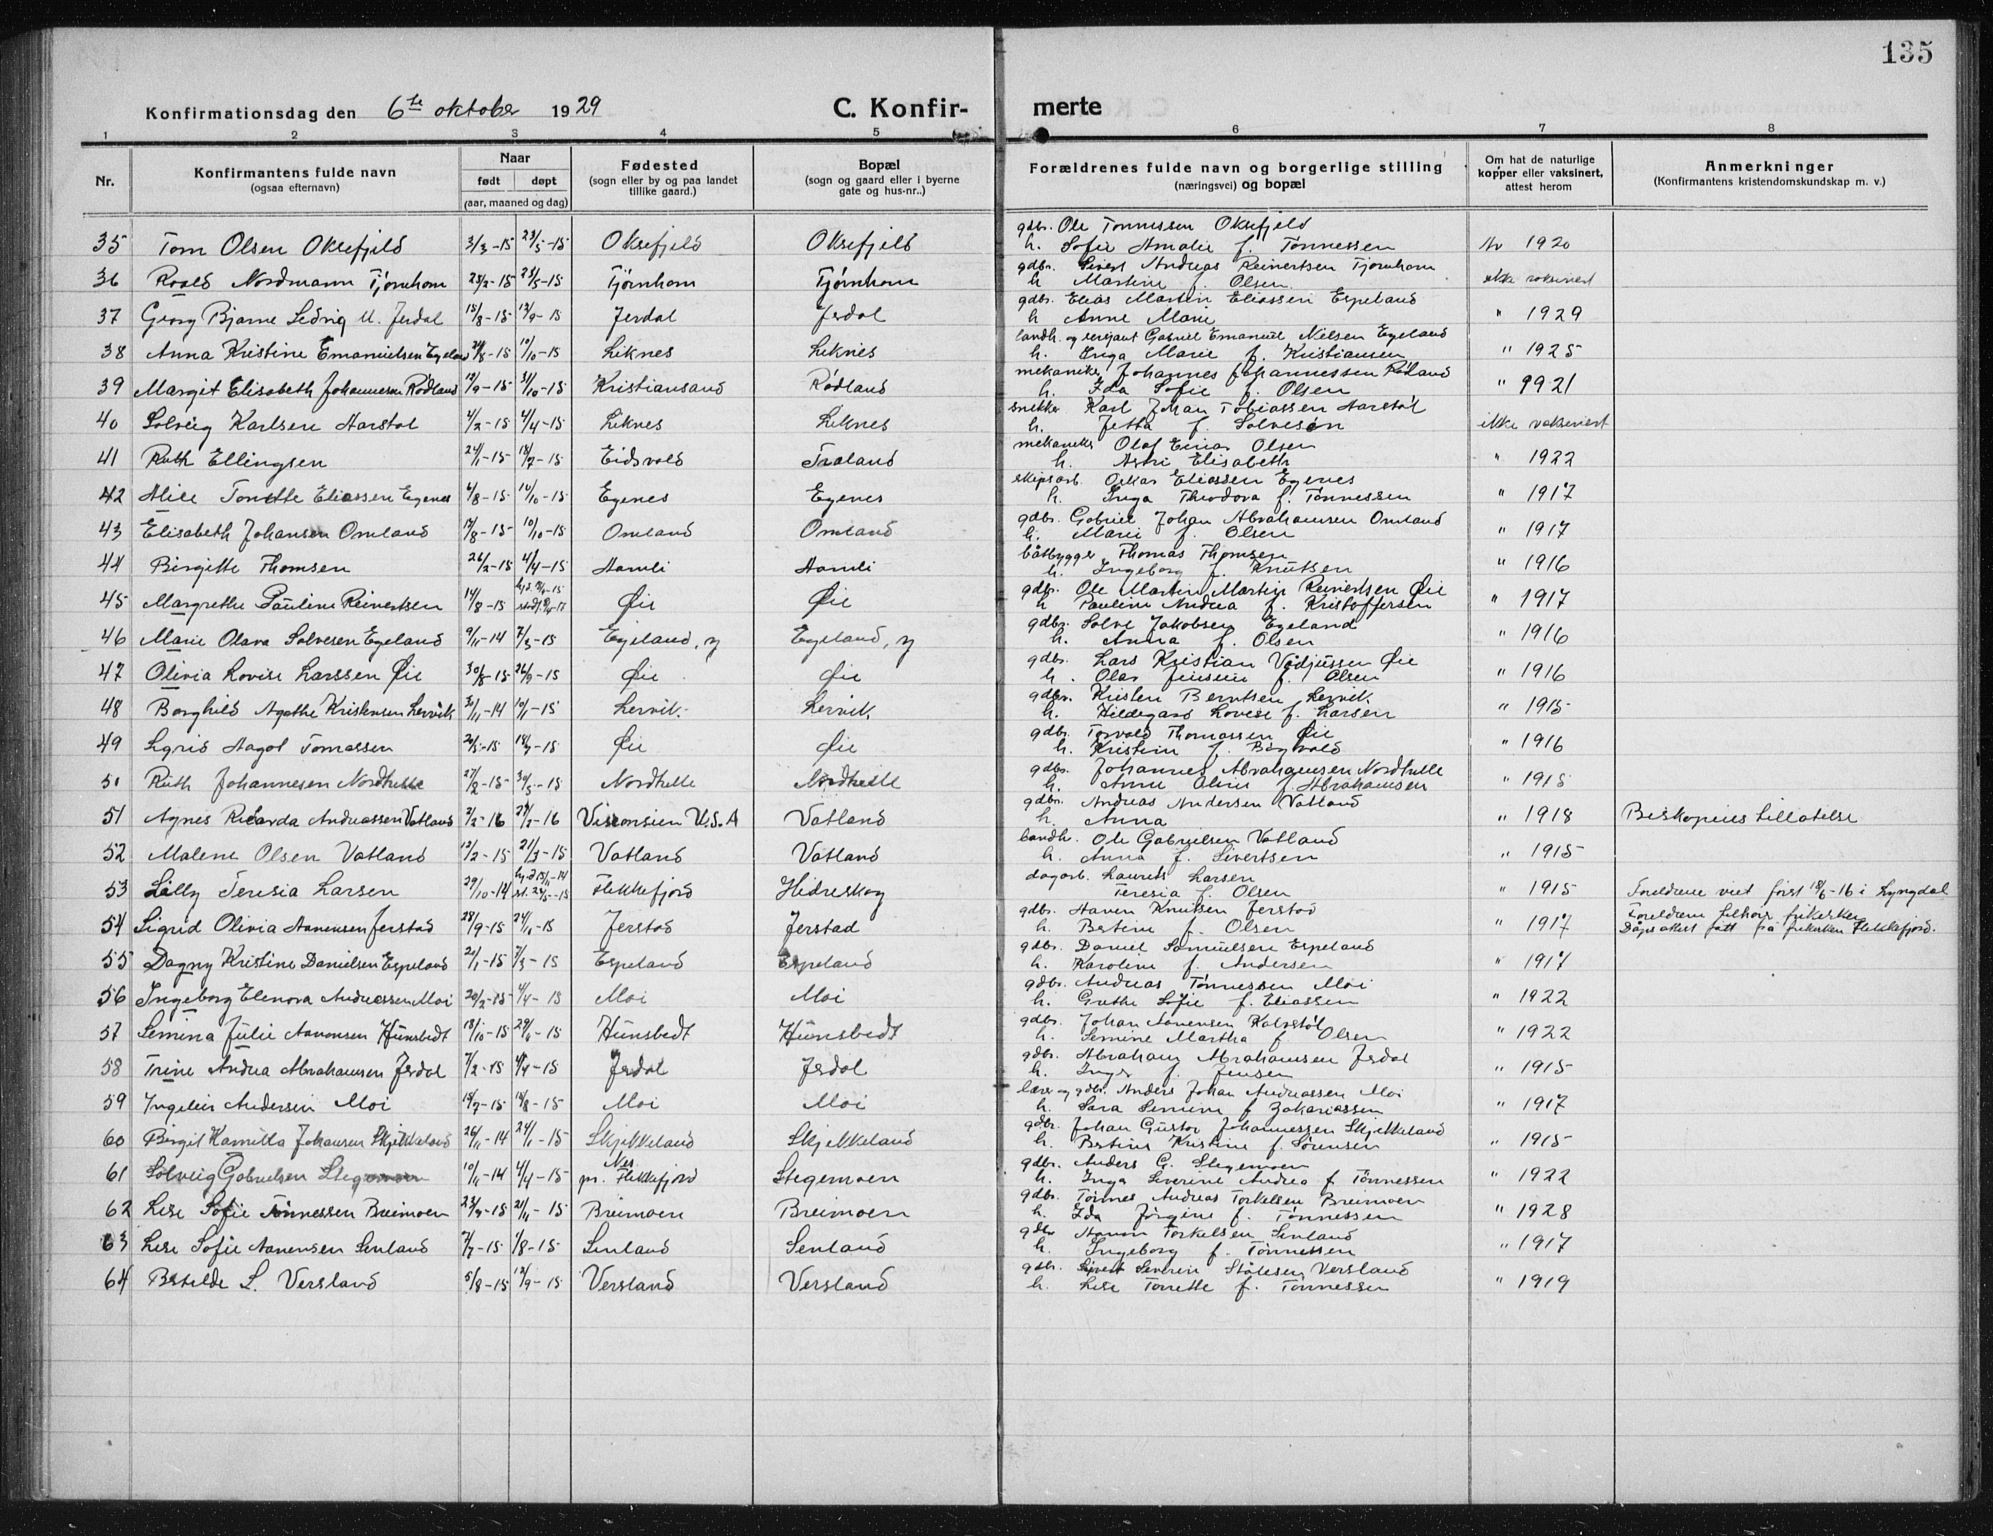 135
Konfirmationsdag den 6te oktober 1929
C. Konfirmerte
1 2 3 4 5 6 7 8
Nr. Konfirmantens fulde navn (ogsaa efternavn) Naar født døpt (aar, maaned og dag) Fødested (sogn eller by og paa landet tillike gaard.) Bopæl (sogn og gaard eller i byerne gate og hus-nr..) Forældrenes fulde navn og borgerlige stilling (næringsvei) og bopæl Om hat de naturlige kopper eller vaksinert, attest herom Anmerkninger (Konfirmantens kristendomskundskap m. v.)
35 Tom Olsen Oksefjeld 3/3-15 23/5-15 Oksefjeld Oksefjeld gdbr. Ole Tønnessen Oksefjeld
h. Sofie Amalie f. Tønnessen Av 1920
36 Roald Nordmann Tjørnhom 23/5-15 Tjørnhom Tjørnhom gdbr. Sivert Andreas Reinertsen Tjørnhom
h. Martine f. Olsen ikke vaksinert
37 Georg Bjarne Ledvig M. Jerdal 15/8-15 12/9-15 Jerdal Jerdal gdbr. Elias Martin Eliassen Espeland
h. Anne Marie " 1929
38 Anna Kristine Emanuelsen Egeland 10/10-15 Liknes Liknes landh. og Gabriel Emanuel Nielsen Egeland
h. Inga Marie f. Kristiansen " 1925
39 Margit Elisabeth Johannessen Rødland 12/9-15 31/10-15 Kristiansand Rødland mekaniker Johannes Johannessen Rødland
h. Ida Sofie f. Olsen " 9921
40 Solveig Karlsen Aarstøl 2/2-15 4/4-15 Liknes Liknes snikker Karl Johan Tobiassen Aarstøl
h. Jetta f. Solvesen ikke vaksinert
41 Ruth Ellingsen 24/1-15 18/7-15 Eidsvold Traland mekaniker Olaf Einar Olsen
h. Astri Elisabeth " 1922
42 Alice Tonette Eliassen Egenes 6/8-15 10/10-15 Egenes Egenes skipsarb. Oskar Eliassen Egenes
h. Inga Theodora f. Tønnessen " 1917
43 Elisabeth Johansen Omland 10/10-15 Omland Omland gdbr. Gabriel Johan Abrahamsen Omland
h. Marie f. Olsen " 1917
44 Birgitte Thomsen 26/2-15 4/4-15 Aamli Aamli båtbygger Thomas Thomsen
h. Ingeborg f. Knutsen " 1916
45 Margrethe Pauline Reinertsen 14/8-15 Øie Øie gdbr. Ole Martin Martin Reinertsen Øie
h. Pauline Andrea f. Kristoffersen " 1917
46 Marie Olava Solvesen Egeland 9/11-14 7/3-15 Egeland, y Egeland, y gdbr. Solve Jakobsen Egeland
h. Anna f. Olsen " 1916
47 Olivia Lovise Larssen Øie 30/8-15 26/9-15 Øie Øie gdbr. Lars Kristian Vødjussen Øie
h. Olsen " 1916
48 Borghild Agathe Kristensen Lervik 30/11-14 10/1-15 Lervik Lervik gdbr. Kristen Berntsen Lervik
h. Hildegard Lovise f. Larsen " 1915
49 Sigrid Aagot Tomassen 18/7-15 Øie Øie gdbr. Torvald Thomassen Øie
h. Kristine f. Bøgvald " 1916
50 Ruth Johannesen Nordhelle 27/2-15 30/5-15 Nordhelle Nordhelle gdbr. Johannes Abrahamsen Nordhelle
h. Anne Oline f. Abrahamsen " 1915
51 Agnes Ricarda Andreassen Vatland 2/2-16 27/2-16 Visconsien U.S.A Vatland gdbr. Andreas Andersen Vatland
h. Anna " 1918 Biskopens tillatelse
52 Malene Olsen Vatland 12/2-15 21/3-15 Vatland Vatland landh. Ole Gabrielsen Vatland
h. Anna f. Sivertsen " 1915
53 Lilly Teresia Larsen 29/10-14 Flekkefjord Hidreskog dagarb. Laurits Larsen
Teresia f. Olsen " 1915 Foreldrene viet først 18/6-16 i Lyngdal
54 Sigrid Olivia Aanensen Jerstad 28/9-15 24/11-15 Jerstad Jerstad gdbr. Haaven Knutsen Jerstad
h. Bertine f. Olsen " 1917 Foreldrene tilhører frikirken
Dåpsattest fått fra frikirken Flekkefjord.
55 Dagny Kristine Danielsen Espeland 21/1-15 7/3-15 Espeland Espeland gdbr. Daniel Samuelsen Espeland
h. Karoline f. Andersen " 1917
56 Ingeborg Elenora Andreassen Moi 20/2-15 4/4-15 Moi Moi gdbr. Andreas Tønnessen Moi
h. Grethe Sofie f. Eliassen " 1922
57 Semina Julie Aanensen Hunsbedt 18/10-15 Hunsbedt Hunsbedt gdbr. Johan Aanensen Kalvstøl
h. Semine Martha f. Olsen " 1922
58 Trine Andrea Abrahamsen Jerdal 7/2-15 4/4-15 Jerdal Jerdal gdbr. Abraham Abrahamsen Jerdal
h. Inger f. Jensen " 1915
59 Ingeleiv Andersen Moi 18/7-15 Moi Moi lærer og gdbr. Anders Johan Andreassen Moi
h. Sara Semine f. Zakariassen " 1917
60 Birgit Kamilla Johansen Skjekkeland 26/11-14 24/1-15 Skjekkeland Skjekkeland gdbr. Johan Gustav Johannessen Skjekkeland
h. Bertine Kristine f. Sørensen " 1915
61 Solveig Gabrielsen Stegemoen 10/11-14 4/4-15 Nes pr. Flekkefjord Stegemoen gdbr. Anders G. Stegemoen
h. Inga Severine Andrea f. Tønnessen " 1922
62 Lise Sofie Tønnessen Breimoen 21/11-15 Breimoen Breimoen gdbr. Tønnes Andreas Torkelsen Breimoen
h. Ida Jørgine f. Tønnessen " 1928
63 Lise Sofie Aanensen Senland 7/7-15 1/8-15 Senland Senland gdbr. Aanen Torkelsen Senland
h. Ingeborg f. Tønnessen " 1917
64 Betilde S. Versland 5/8-15 12/9-15 Versland Versland gdbr. Sivert Severin Ståtesen Versland
h. Lise Tonette f. Tønnessen " 1919